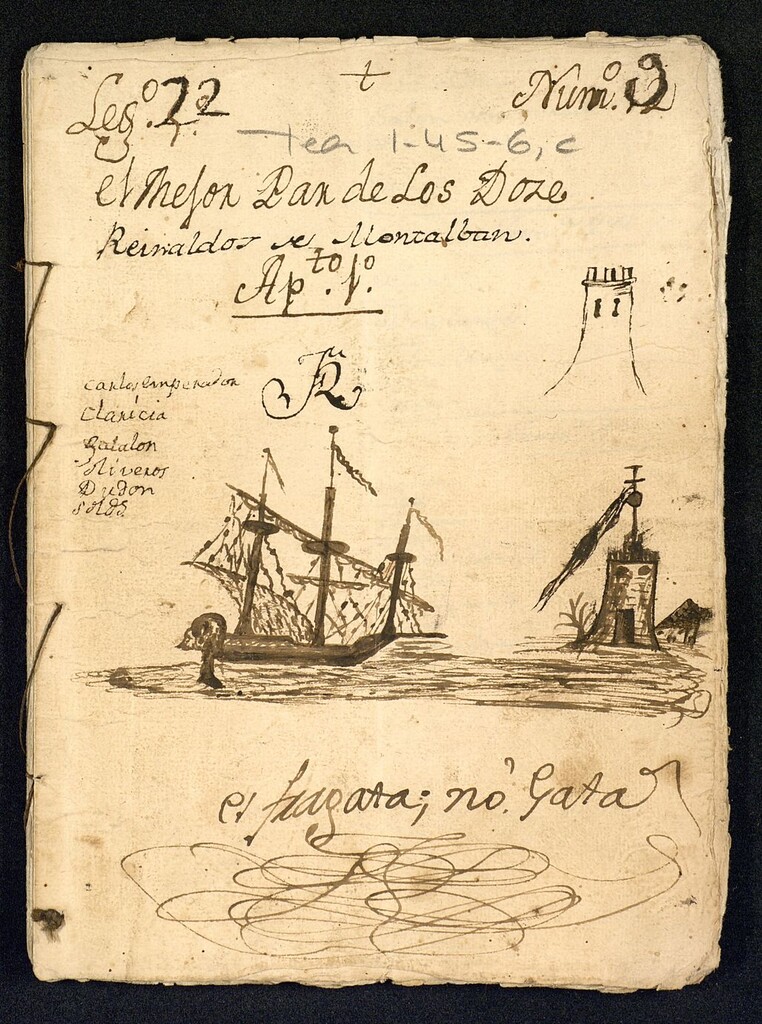 t
Legº. 22
Numº. 9
Tea 1-45-6, c
el Mejor Par de Los Doze
Reinaldos de Montalban.
Apᵗᵒ. 1º.
Carlos emperador
Claricia
Galalon
oliveros
Dudon
solds.
es fragata; no Gata